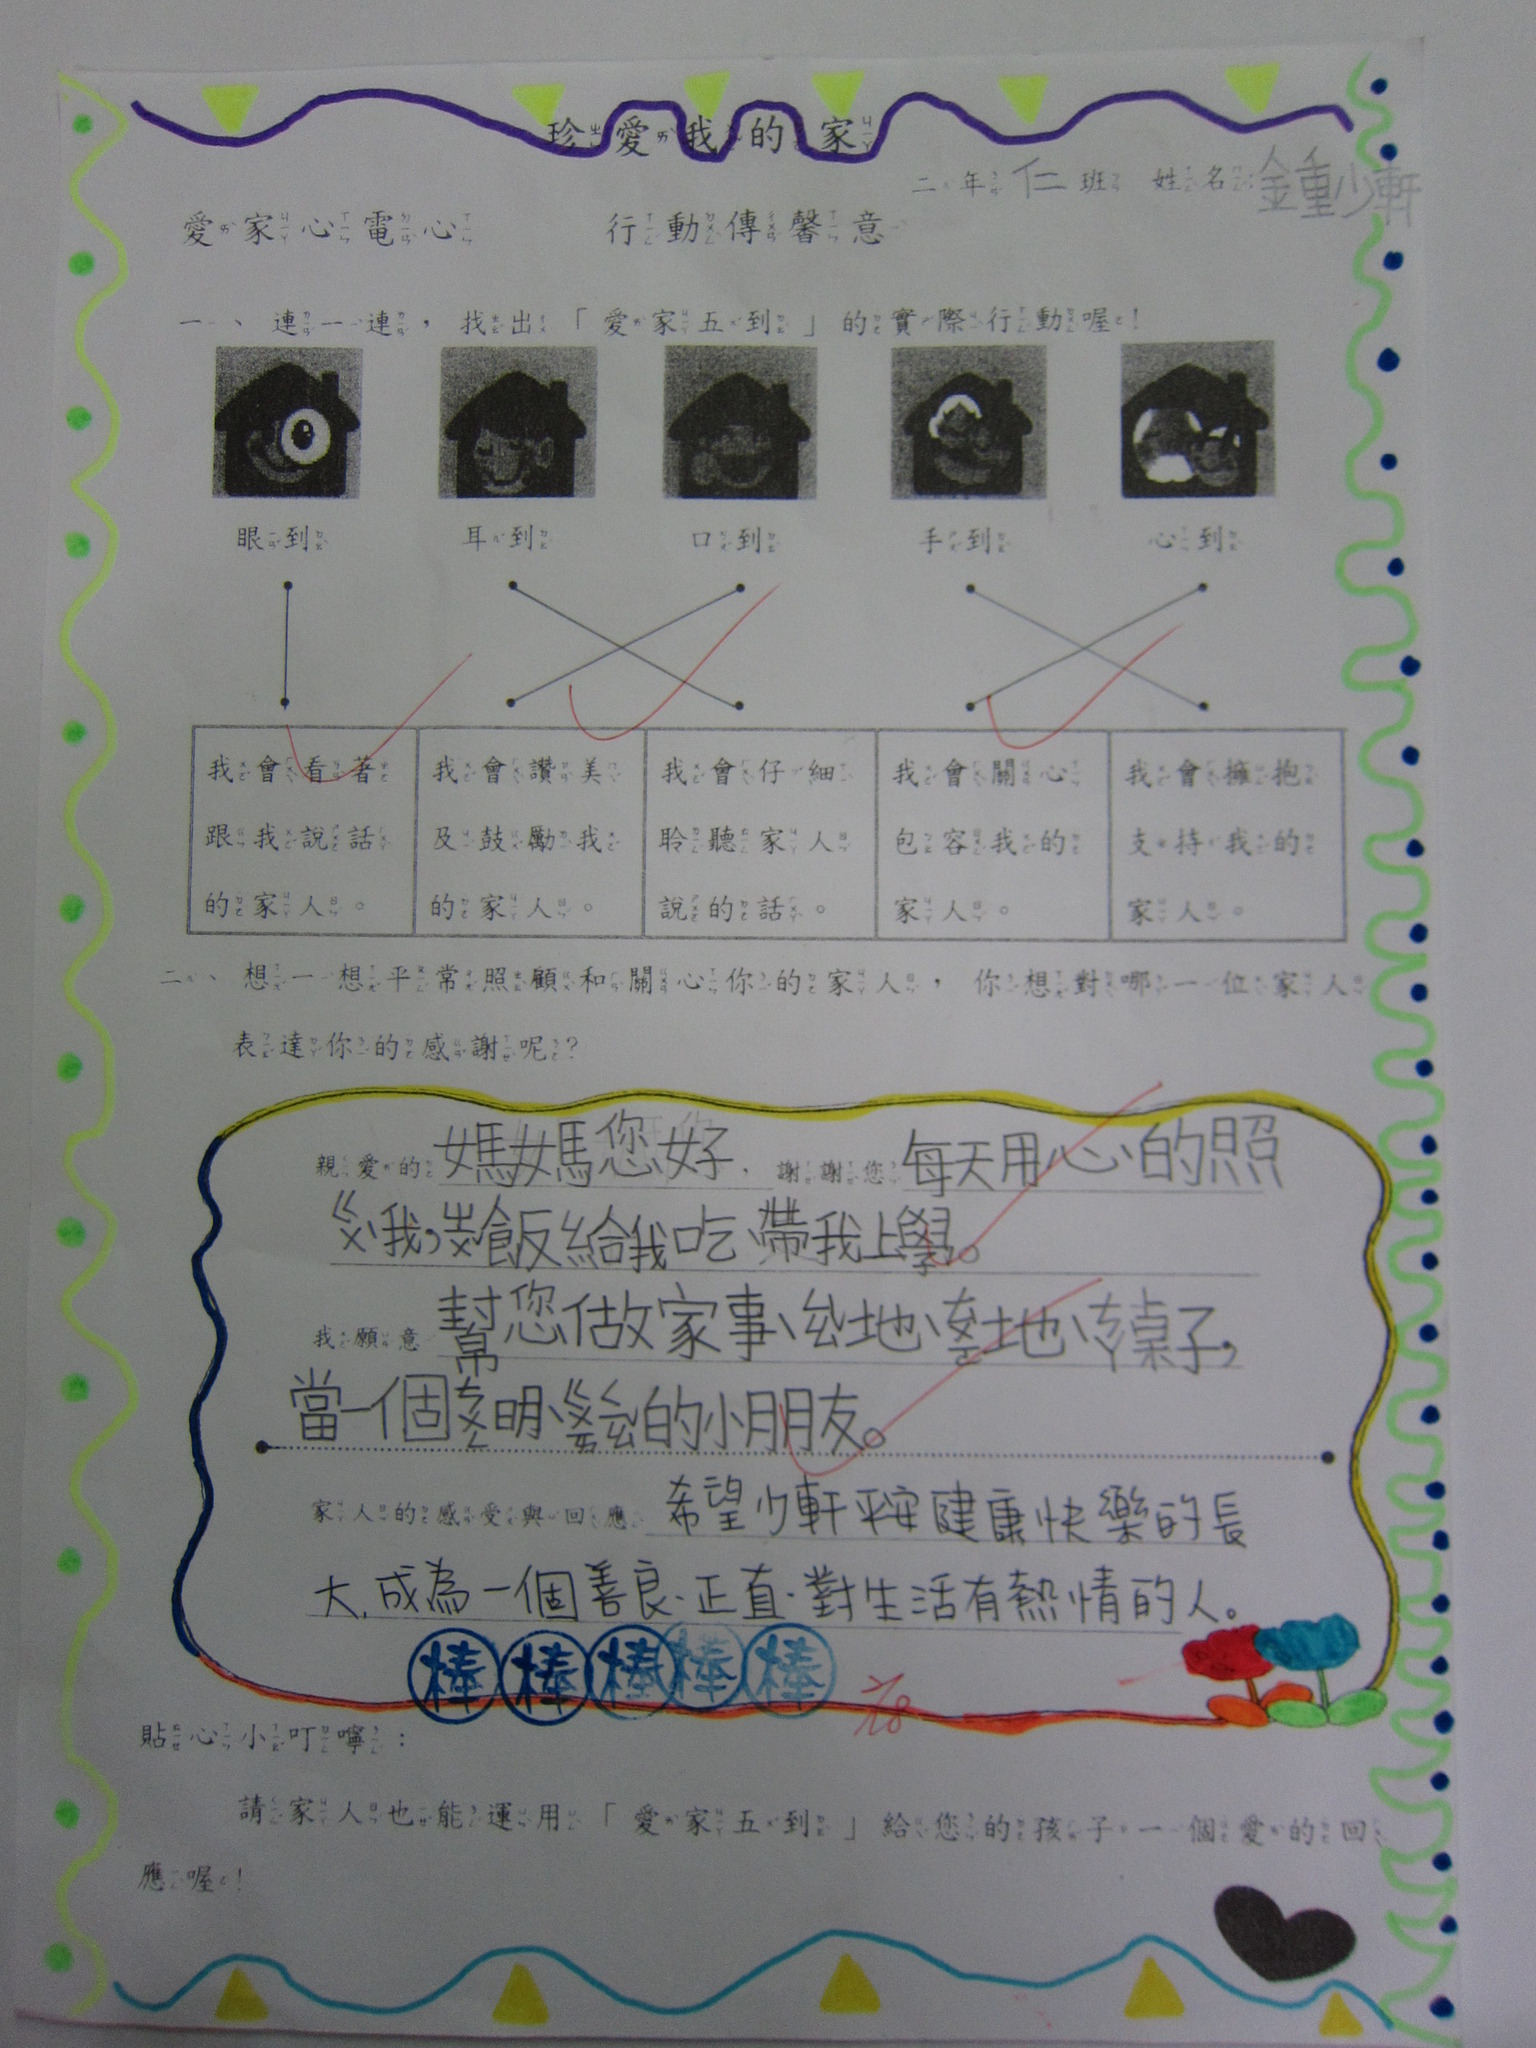 珍愛我的家
二年仁班 姓名:鍾少軒
愛家心電心 行動傳馨意
一、連一連，找出「愛家五到」的實際行動喔！
眼到 耳到 口到 手到 心到
我會看著跟我說話的家人。
我會讚美及鼓勵我的家人。
我會仔細聆聽家人說的話。
我會關心包容我的家人。
我會擁抱支持我的家人。
二、想一想平常照顧和關心你的家人，你想對哪一位家人
表達你的感謝呢？
親愛的媽媽您好，謝謝您每天用心的照
ㄍㄨˋ我，ㄓㄨˇ飯給我吃、帶我上學。
我願意幫您做家事、地、地、ㄘㄚ桌子，
當一個ㄘㄨㄥ明、ㄍㄨㄞ的小朋友。
家人的感受與回應 希望少軒平安健康快樂的長
大，成為一個善良、正直、對生活有熱情的人。
棒棒棒棒棒
貼心小叮嚀：
請家人也能運用「愛家五到」給您的孩子一個愛的回
應喔！